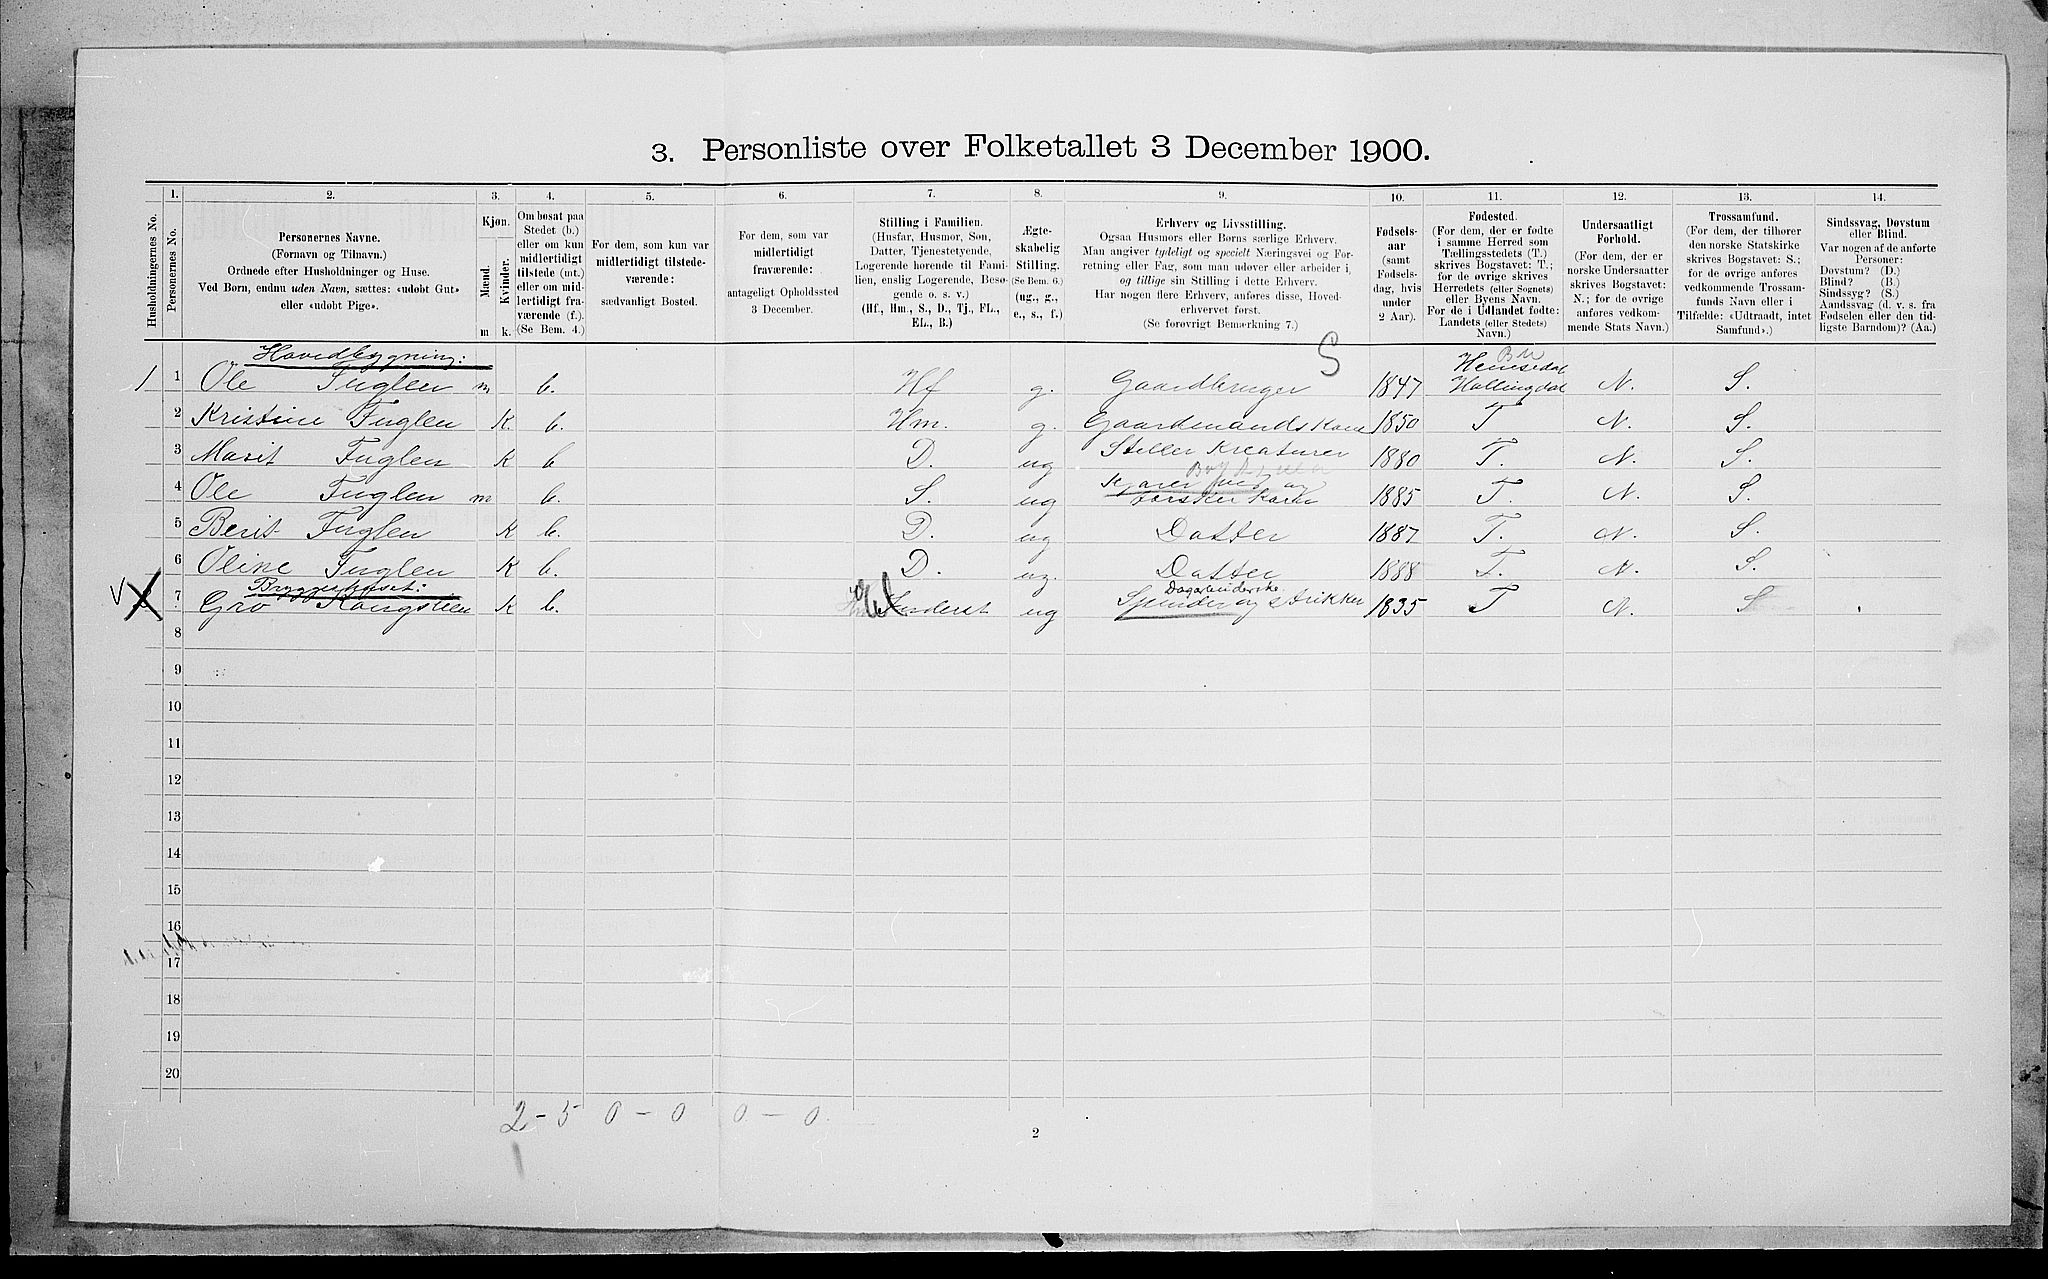 3. Personliste over Folketallet 3 December 1900.
1. 2. 3. 4. 5. 6. 7. 8. 9. 10. 11. 12. 13. 14.
Husholdningernes No.
Personernes No.
Personernes Navne.
(Fornavn og Tilnavn.)
Ordnede efter Husholdninger og Huse.
Ved Børn, endnu uden Navn, sættes: «udøbt Gut»
eller «udøbt Pige».
Kjøn.
Mænd.
Kvinder.
m k.
Om bosat paa
Stedet (b.)
eller om kun
midlertidigt
tilstede (mt.)
eller om mid-
lertidigt fra-
værende (f.).
(Se Bem. 4.)
For dem, som kun var
midlertidigt tilstede-
værende:
sædvanligt Bosted.
For dem, som var
midlertidigt
fraværende:
antageligt Opholdssted
3 December.
Stilling i Familien.
(Husfar, Husmor, Søn,
Datter, Tjenestetyende,
Logerende hørende til Fami-
lien, enslig Logerende, Besø-
gende o. s. v.)
(Hf., Hm., S., D., Tj., FL.,
EL., B.)
Ægte-
skabelig
Stilling.
(Se Bem. 6.)
(ug., g.,
e., s., f.)
Erhverv og Livsstilling.
Ogsaa Husmors eller Børns særlige Erhverv.
Man angiver tydeligt og specielt Næringsvei og For-
retning eller Fag, som man udøver eller arbeider i,
og tillige sin Stilling i dette Erhverv.
Har nogen flere Erhverv, anføres disse, Hoved-
erhvervet først.
(Se forøvrigt Bemærkning 7.)
Fødsels-
aar
(samt
Fødsels-
dag, hvis
under
2 Aar).
Fødested.
(For dem, der er fødte
i samme Herred som
Tællingsstedets (T.)
skrives Bogstavet: T.;
for de øvrige skrives
Herredets (eller Sognets)
eller Byens Navn.
For de i Udlandet fødte:
Landets (eller Stedets)
Navn.)
Undersaatligt
Forhold.
(For dem, der er
norske Undersaatter
skrives Bogstavet:
N.; for de øvrige
anføres vedkom-
mende Stats Navn.)
Trossamfund.
(For dem, der tilhører
den norske Statskirke
skrives Bogstavet: S.;
for de øvrige anføres
vedkommende Trossam-
funds Navn eller i
Tilfælde: «Udtraadt, intet
Samfund».)
Sindssvag, Døvstum
eller Blind.
Var nogen af de anførte
Personer:
Døvstum? (D.)
Blind? (B.)
Sindssyg? (S.)
Aandssvag (d. v. s. fra
Fødselen eller den tid-
ligste Barndom)? (Aa.)
Hovedbygning: S
1 1 Ole Fuglen m b. Hf g. Gaardbruger 1847 Hemsedal Hallingdal N. S.
2 Kristine Fuglen K. b. Hm. g. Gaardmandskone 1850 T N. S.
3 Marit Fuglen K b D. ug Steller Kreaturer 1880 T. N. S.
4 Ole Fuglen m b. S. ug Kjører ved og 1885 T. N. S.
5 Berit Fuglen K b. D. ug Datter 1887 T. N. S.
6 Oline Fuglen K b. D. ug. Datter 1888 T. N. S.
Bryggerhuset: Dagarbeiderske
7 Gro Kongsteen K b. el Inderst ug Spinder og strikker 1835 T N. S
8
9
10
11
12
13
14
15
16
17
18
19
20
2 - 5 0 - 0 0 - 0
2